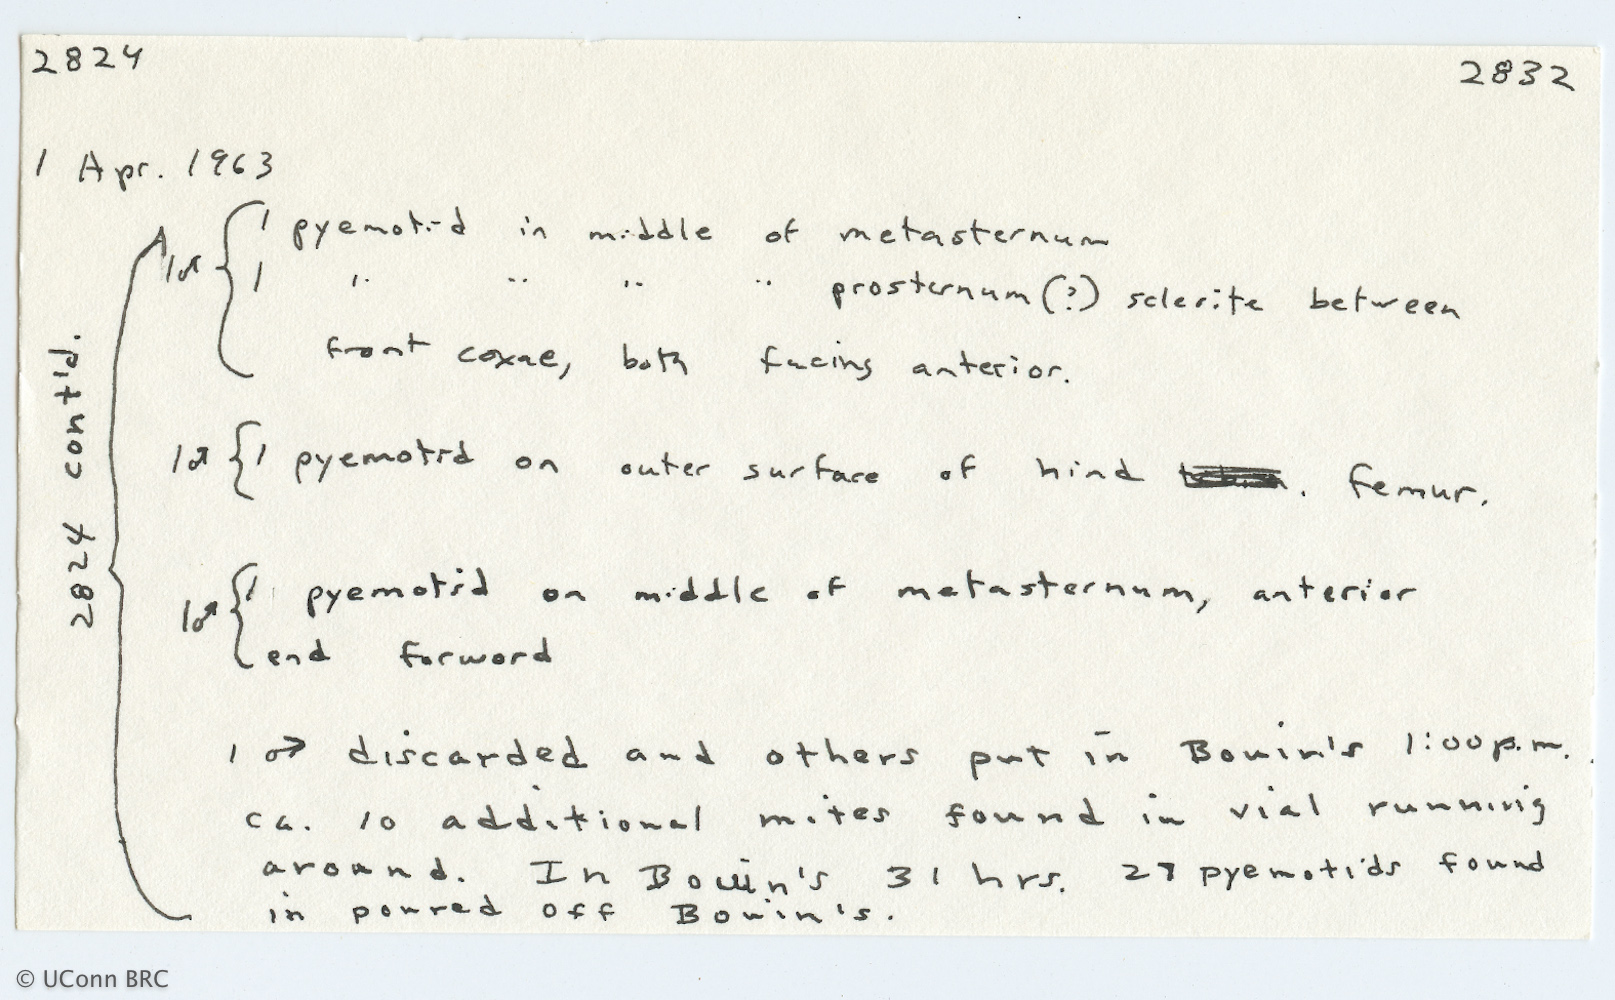 2824 2832
1 Apr. 1963
1♂ { 1 pyemotid in middle of metasternum
1 " " " " prosternum (?) sclerite between
front coxae, both facing anterior.
1♂ { 1 pyemotid on outer surface of hind . femur.
1♂ { 1 pyemotid on middle of metasternum, anterior
end forword
1 ♂ discarded and others put in Bouin's 1:00 p.m.
ca. 10 additional mites found in vial running
around. In Bouin's 31 hrs. 27 pyemotids found
in poured off Bouin's.
2824 cont'd.
© UConn BRC